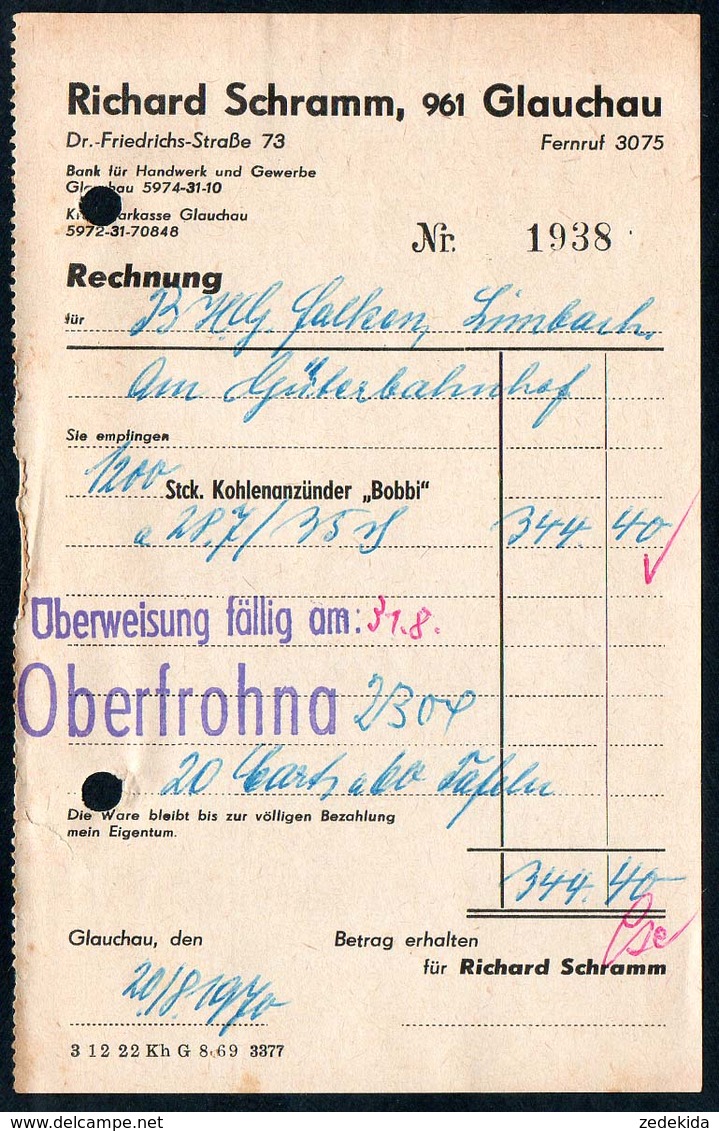 Richard Schramm, 961 Glauchau
Dr.-Friedrichs-Straße 73 Fernruf 3075
Bank für Handwerk und Gewerbe
Glauchau 5974-31-10
Kreissparkasse Glauchau
5972-31-70848
Nr. 1938
Rechnung
für BHG. Falken, Limbach.
Am Güterbahnhof
Sie empfingen
1200 Stck. Kohlenanzünder „Bobbi“
a 28,7/35 344. 40
Überweisung fällig am: 31.8.
Oberfrohna
20 Cart. a 60 Tafeln
Die Ware bleibt bis zur völligen Bezahlung
mein Eigentum.
344. 40
Glauchau, den Betrag erhalten
für Richard Schramm
20/8.1970
3 12 22 Kh G 8.69 3377
zedekida
delcampe.net